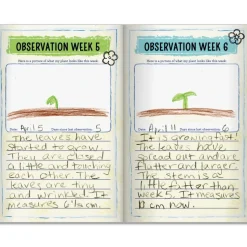 OBSERVATION WEEK 5
Here is a picture of what my plant looks like this week.
Date: April 5
Days since last observation: 5
The leaves have
started to grow.
They are closed
a little and touching
each other. The
leaves are tiny
and wrinkled. It
measures 6 1/2 cm.
OBSERVATION WEEK 6
Here is a picture of what my plant looks like this week.
Date: April 11
Days since last observation: 6
It is growing fast!
The leaves have
spread out and are
flatter and larger.
The stem is a
little
than
week. It measures
cm now.